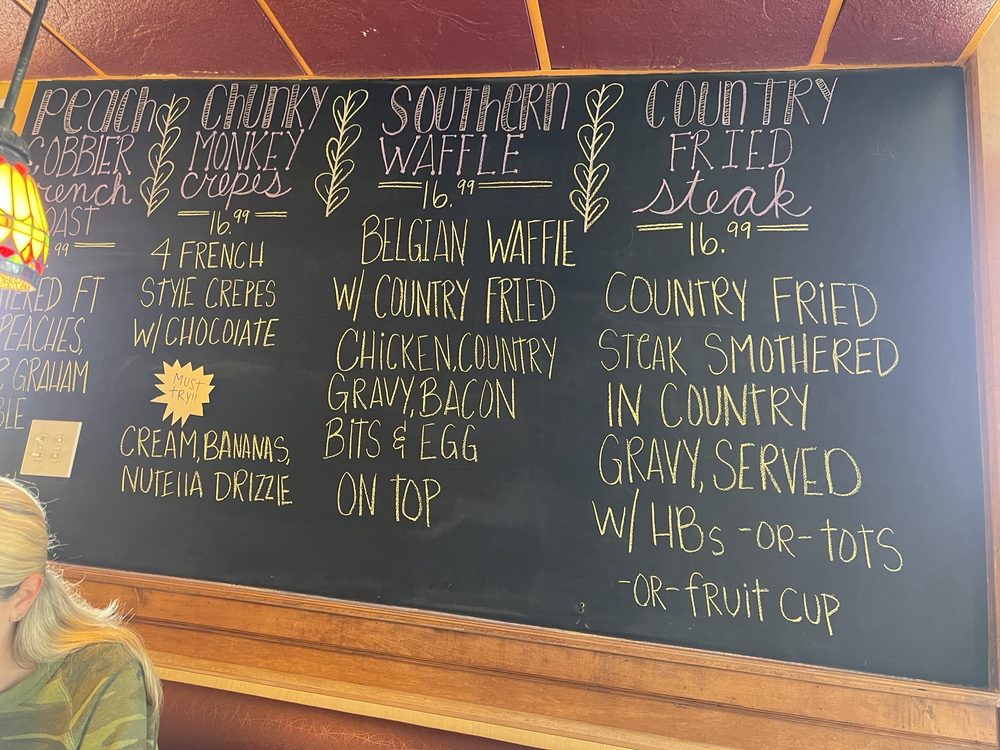 Peach
COBBLER
French
TOAST
.99
FT
PEACHES,
GRAHAM
CHUNKY
MONKEY
crepes
16.99
4 FRENCH
STYLE CREPES
W/ CHOCOLATE
MUST
TRY!!
CREAM, BANANAS,
NUTELLA DRIZZLE
SOUTHERN
WAFFLE
16.99
BELGIAN WAFFLE
W/ COUNTRY FRIED
CHICKEN, COUNTRY
GRAVY, BACON
BITS & EGG
ON TOP
COUNTRY
FRIED
steak
16.99
COUNTRY FRIED
STEAK SMOTHERED
IN COUNTRY
GRAVY, SERVED
W/ HBs -OR- TOTS
-OR- FRUIT CUP